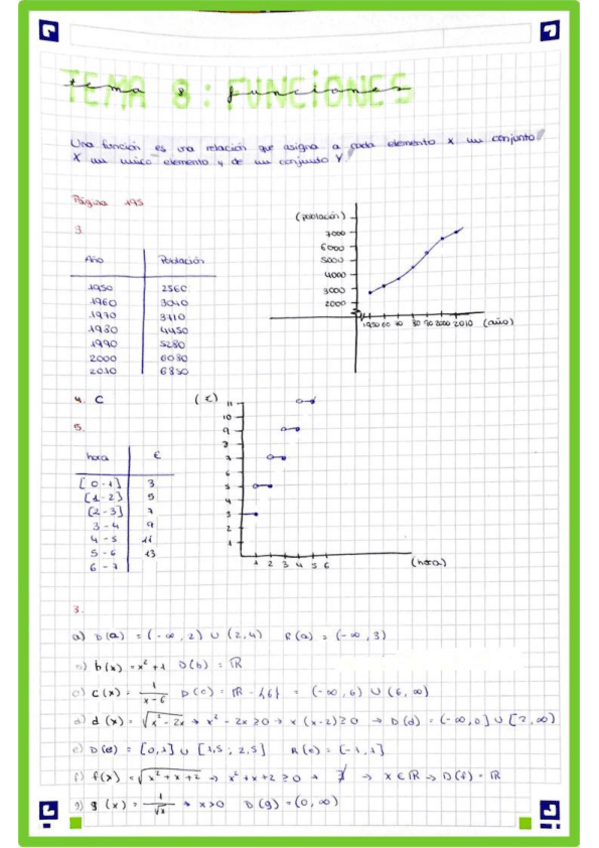 TEMA 8: FUNCIONES
tema 8: funciones
Una función es una relación que asigna a cada elemento x un conjunto
X un único elemento y de un conjunto Y
Página 195
3.
Año Población
1950 2560
1960 3040
1970 3110
1980 4450
1990 5280
2000 6080
2010 6850
(población)
7000
6000
5000
4000
3000
2000
1950 60 70 80 90 2000 2010 (año)
4. C
5.
hora €
[0-1] 3
(1-2] 5
(2-3] 7
3-4 9
4-5 11
5-6 13
6-7
(€)
11
10
9
8
7
6
5
4
3
2
1
1 2 3 4 5 6 (hora)
3.
a) D(a) = (-∞, 2) ∪ (2,4) R(a) = (-∞, 3)
b) b(x) = x² + 1 D(b) = ℝ
c) c(x) = 1/(x-6) D(c) = ℝ - {6} = (-∞, 6) ∪ (6, ∞)
d) d(x) = √(x² - 2x) → x² - 2x ≥ 0 → x(x-2) ≥ 0 → D(d) = (-∞, 0] ∪ [2, ∞)
e) D(e) = [0,1] ∪ [1,5 ; 2,5] R(e) = [-1, 1]
f) f(x) = √(x² + x + 2) → x² + x + 2 ≥ 0 → ∄ → x ∈ ℝ → D(f) = ℝ
g) g(x) = 1/√x → x > 0 D(g) = (0, ∞)